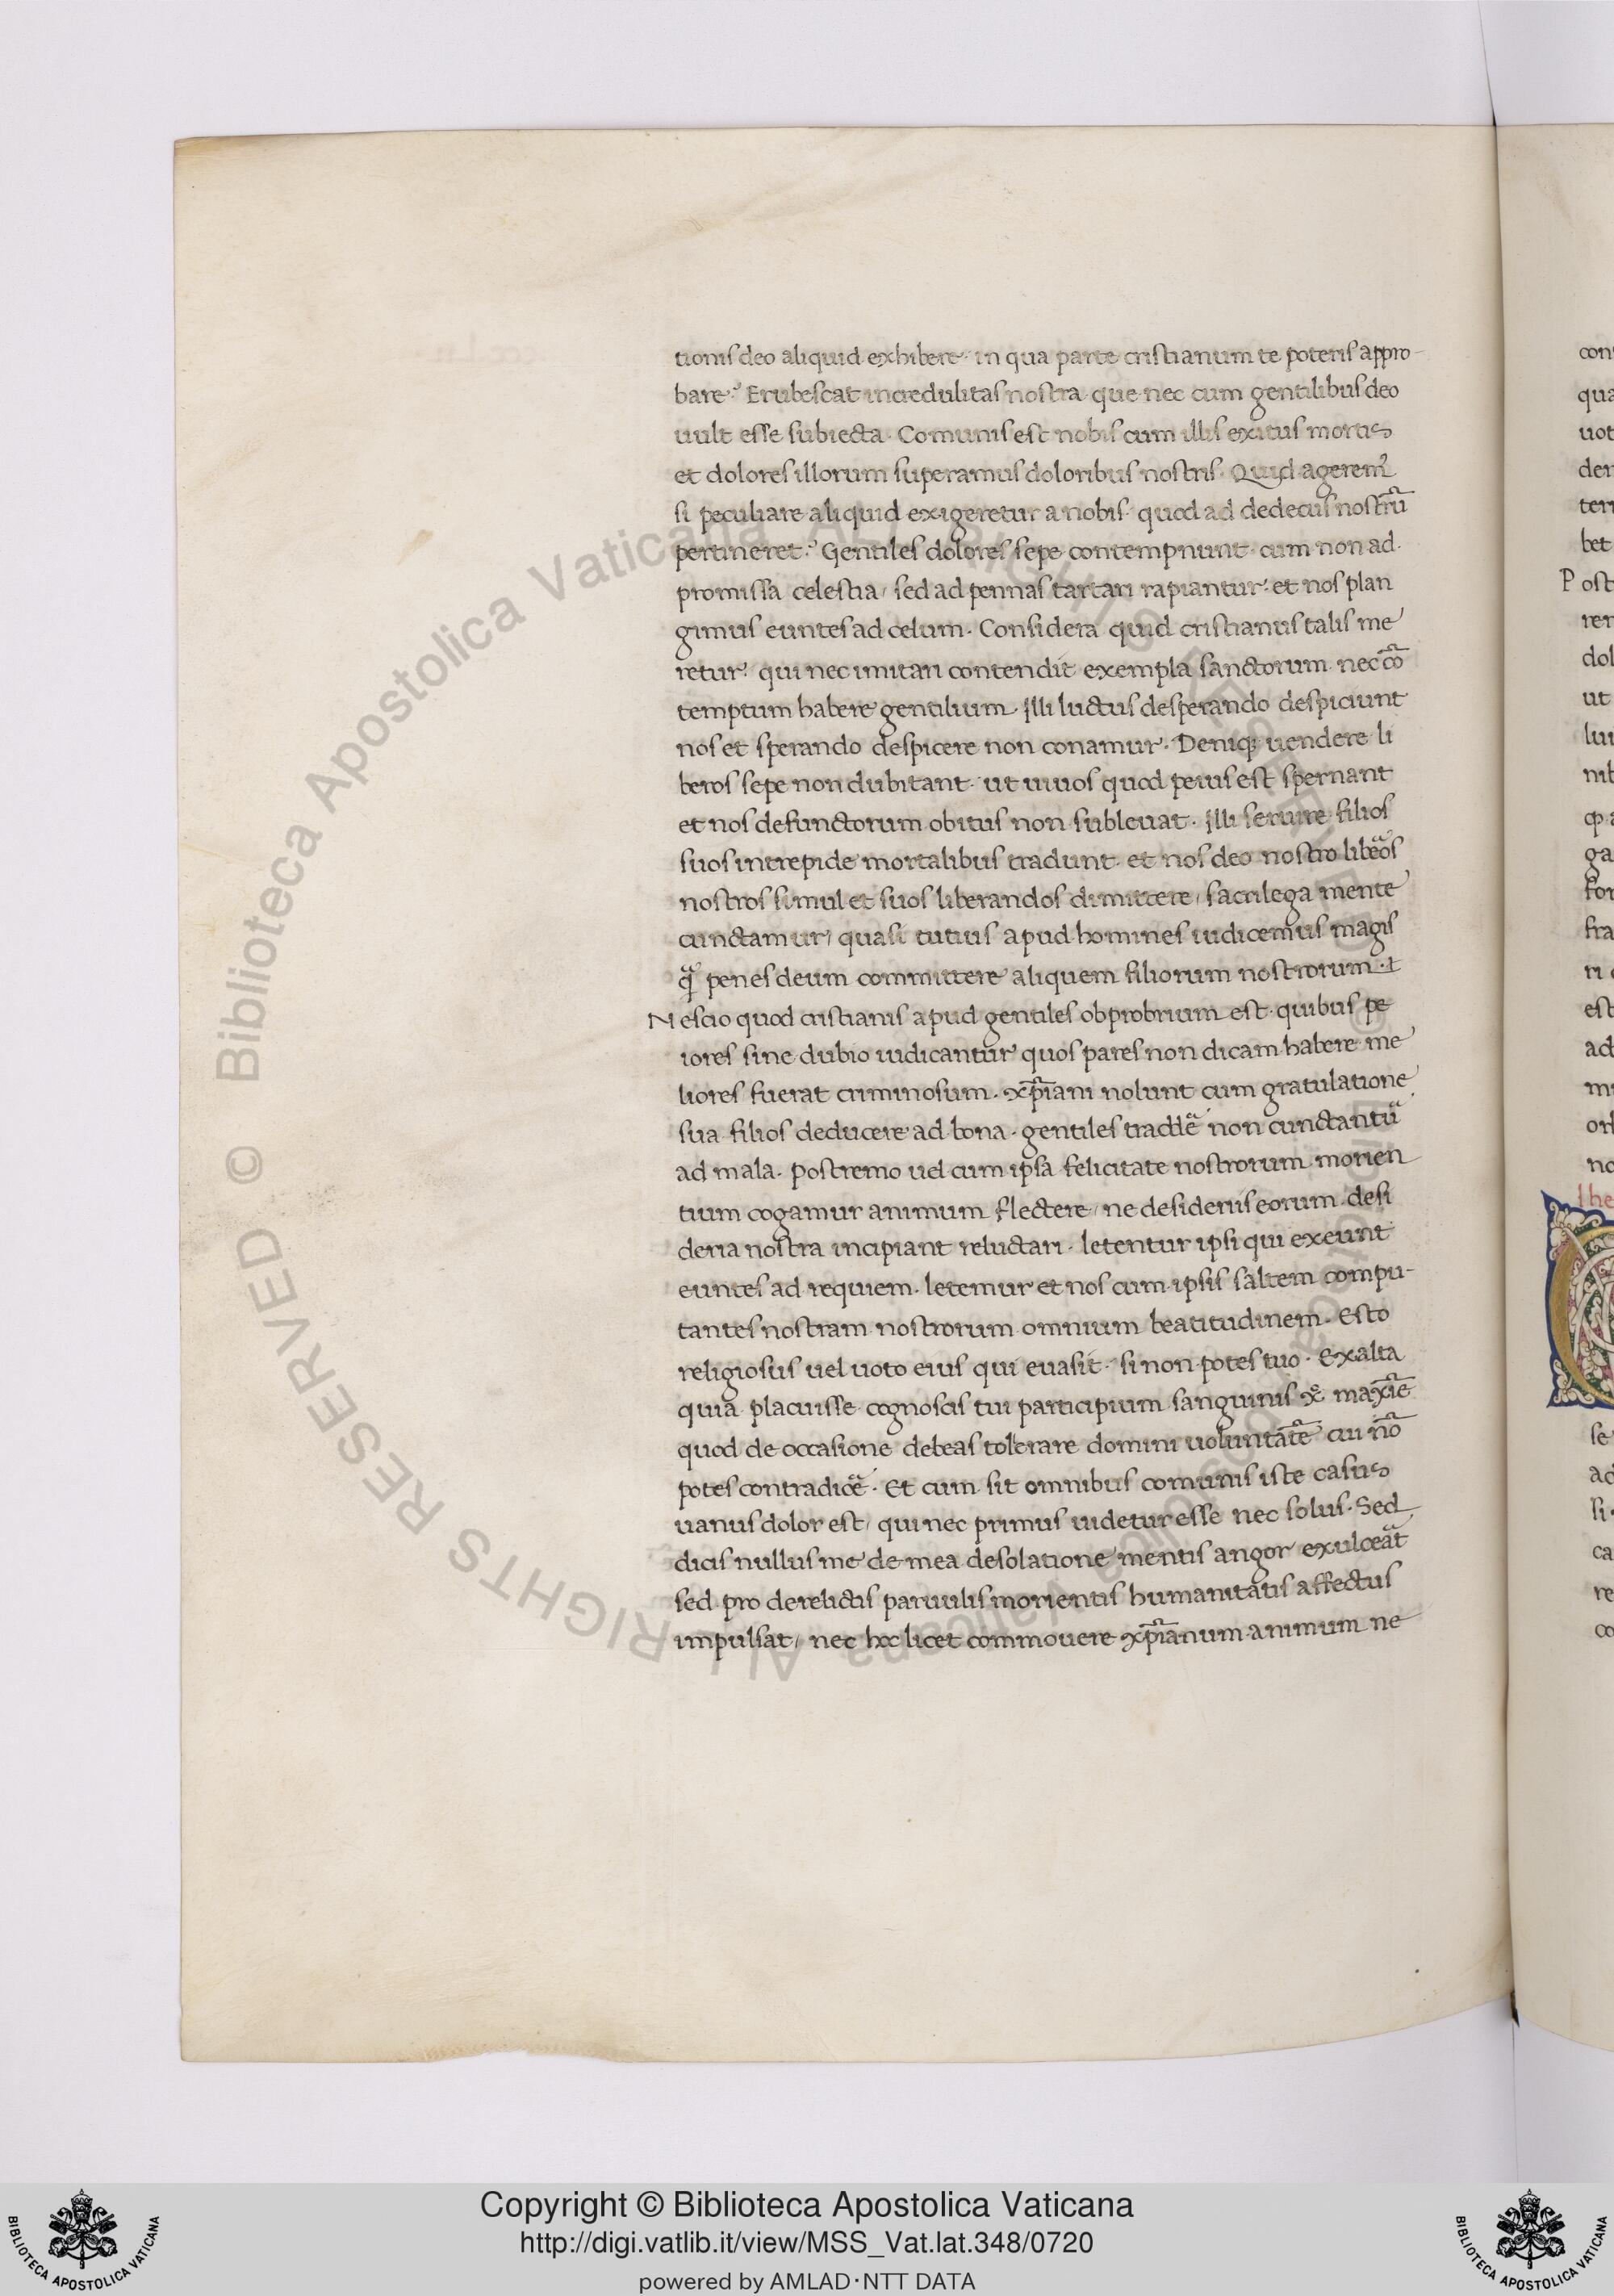 tionis deo aliquid exhibere· in qua parte cristianum te poteris appro-
bare? Erubescat incredulitas nostra que nec cum gentilibus deo
uult esse subiecta· Comunis est nobis cum illis exitus mortis
et dolores illorum superamus doloribus nostris· Quid agerem᷒
si peculiare aliquid exigeretur a nobis· quod ad dedecus nostrū
pertineret? Gentiles dolores sepe contempnunt· cum non ad·
promissa celestia/ sed ad pennas tartari rapiantur· et nos plan
gimus euntes ad celum· Considera quid cristianus talis me
retur· qui nec imitari contendit exempla sanctorum nec cō
temptum habere gentilium· Illi luctus desperando despiciunt
nos et sperando despicere non conamur· Deniqꝫ uendere li
beros sepe non dubitant· ut uiuos quod peius est spernant
et nos defunctorum obitus non subleuat· Illi seruire filios
suos intrepide mortalibus tradunt· et nos deo nostro libe͛os
nostros simul et suos liberandos dimittere/ sacrilega mente
cunctamur/ quasi tutius apud homines iudicemus magis
qᷓ penes deum committere aliquem filiorum nostrorum·
Nescio quod cristianis apud gentiles obprobrium est· quibus pe
iores sine dubio iudicantur quos pares non dicam habere me
liores fuerat criminosum· xp̄iani nolunt cum gratulatione
sua filios deducere ad bona· gentiles tradde͛ non cunctantu͛
ad mala· Postremo uel cum ipsa felicitate nostrorum morien
tium cogamur animum flectere/ ne desideriis eorum desi
deria nostra incipiant reluctari· letentur ipsi qui exeunt
euntes ad requiem· letemur et nos cum ipsis saltem compu-
tantes nostram nostrorum omnium beatitudinem· Esto
religiosus uel uoto eius qui euasit· si non potes tuo· Exalta
quia placuisse cognoscis tui participium sanguinis maxīe
quod de occasione debeas tolerare domini uoluntātē cui nō
potes contradice͛· Et cum sit omnibus comunis iste casus
uanus dolor est/ qui nec primus uidetur esse nec solus· Sed
dicis nullus me de mea desolatione mentis angor exulce͛at
sed pro derelictis paruulis morientis humanitatis affectus
impulsat/ nec hoc licet commouere xp̄ianum animum ne
con
qua
uot
den
bet
Post
rer
dol
ut
ga
for
fra
est
ad
no
se
ad
si·
ca
re
co
© Biblioteca Apostolica Vaticana ALL RIGHTS RESERVED © Biblioteca Apostolica Vaticana ALL RIGHTS RESERVED
BIBLIOTECA APOSTOLICA VATICANA
Copyright © Biblioteca Apostolica Vaticana
http://digi.vatlib.it/view/MSS_Vat.lat.348/0720
powered by AMLAD·NTT DATA
BIBLIOTECA APOSTOLICA VATICANA